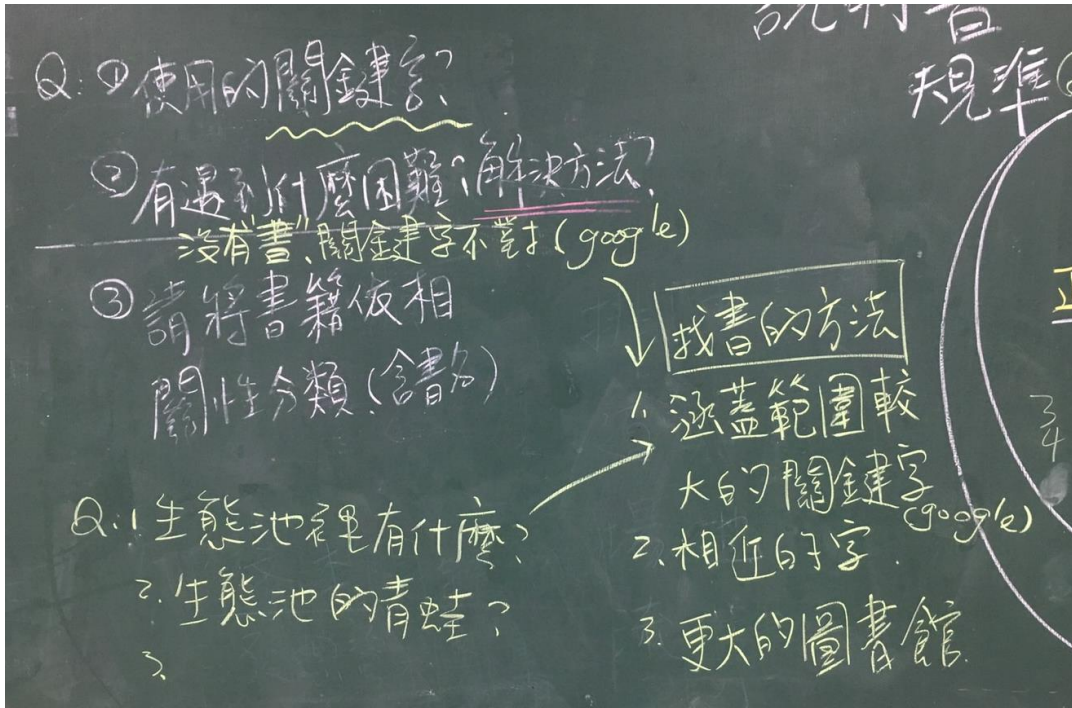 Q: ①使用的關鍵字?
②有遇到什麼困難?解決方法?
沒有"書"、關鍵字不對(google)
③請將書籍依相
關性分類.(含書名)
Q:1.生態池裡有什麼?
2.生態池的青蛙?
3.
找書的方法
1.涵蓋範圍較
大的關鍵字
(google)
2.相近的字.
3.更大的圖書館.
規準
3
4